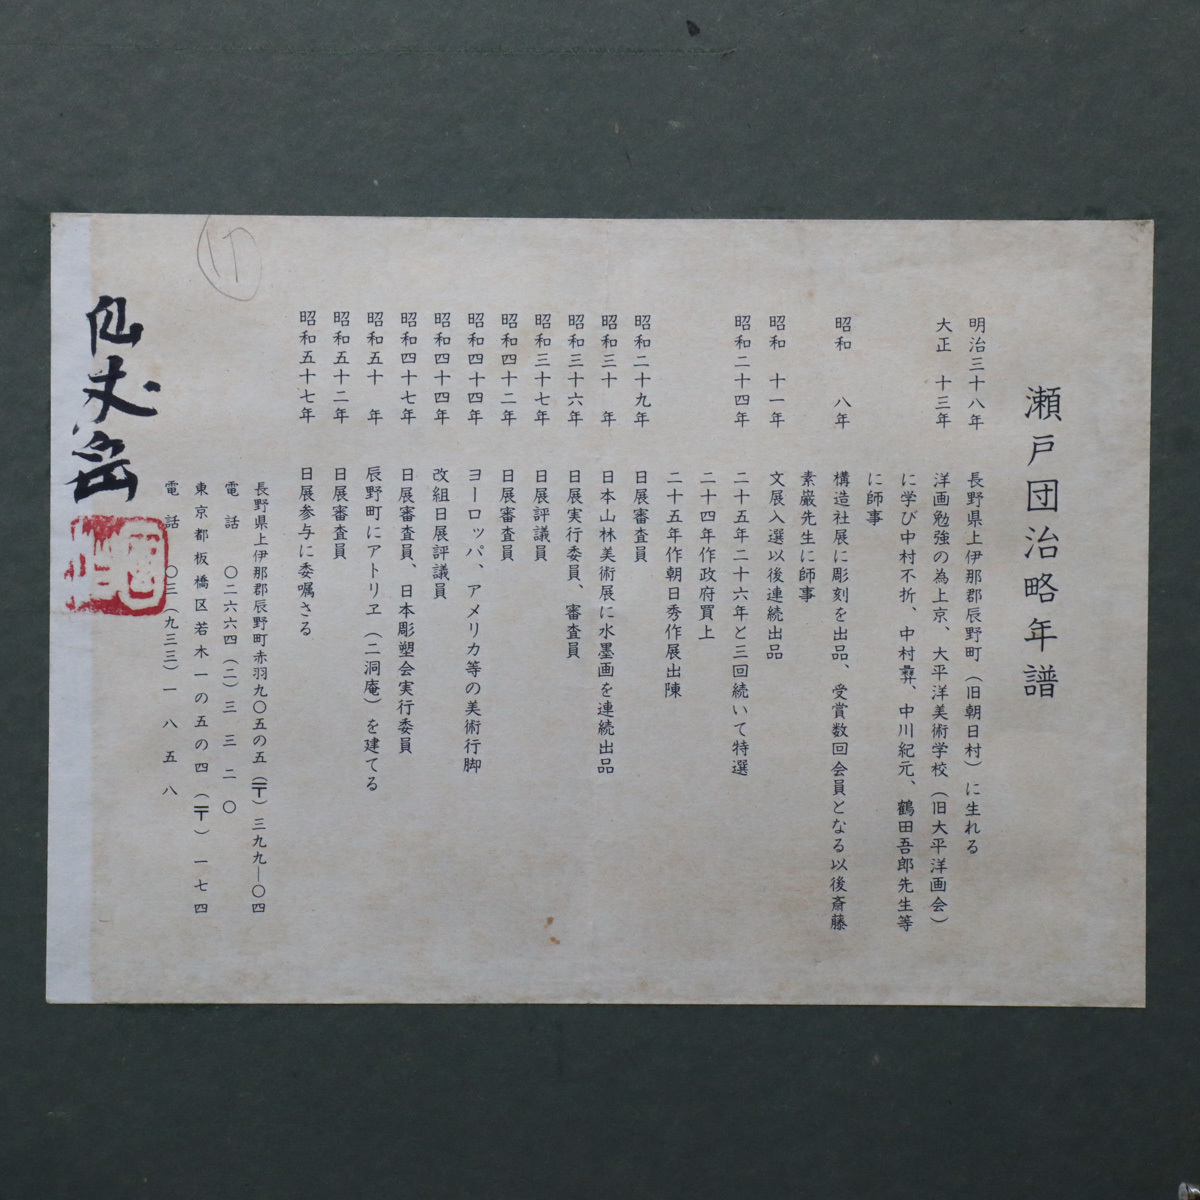 瀬戸団治略年譜
明治三十八年 長野県上伊那郡辰野町（旧朝日村）に生れる
大正 十三年 洋画勉強の為上京、大平洋美術学校（旧大平洋画会）
に学び中村不折、中村彝、中川紀元、鶴田吾郎先生等
に師事
昭和 八年 構造社展に彫刻を出品、受賞数回会員となる以後斎藤
素巌先生に師事
昭和 十一年 文展入選以後連続出品
昭和二十四年 二十五年二十六年と三回続いて特選
二十四年作政府買上
二十五年作朝日秀作展出陳
昭和二十九年 日展審査員
昭和三十 年 日本山林美術展に水墨画を連続出品
昭和三十六年 日展実行委員、審査員
昭和三十七年 日展評議員
昭和四十二年 日展審査員
昭和四十四年 ヨーロッパ、アメリカ等の美術行脚
昭和四十四年 改組日展評議員
昭和四十七年 日展審査員、日本彫塑会実行委員
昭和五十 年 辰野町にアトリヱ（二洞庵）を建てる
昭和五十二年 日展審査員
昭和五十七年 日展参与に委嘱さる
長野県上伊那郡辰野町赤羽九〇五の五（〒）三九九—〇四
電話 〇二六六四（二）三三二〇
東京都板橋区若木一の五の四（〒）一七四
電話 〇三（九三三）一八五八
仙丈岳